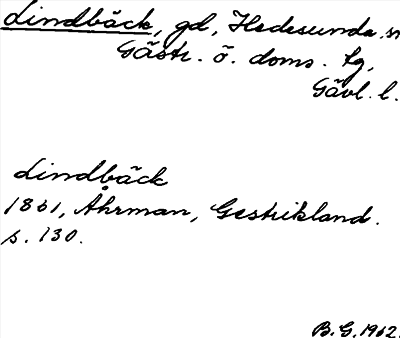 Lindbäck, gd, Hedesunda sn
Gästr. ö. doms. tg,
Gävl. l.
Lindbäck
1861, Åhrman, Gestrikland.
s. 130.
B.G. 1962.